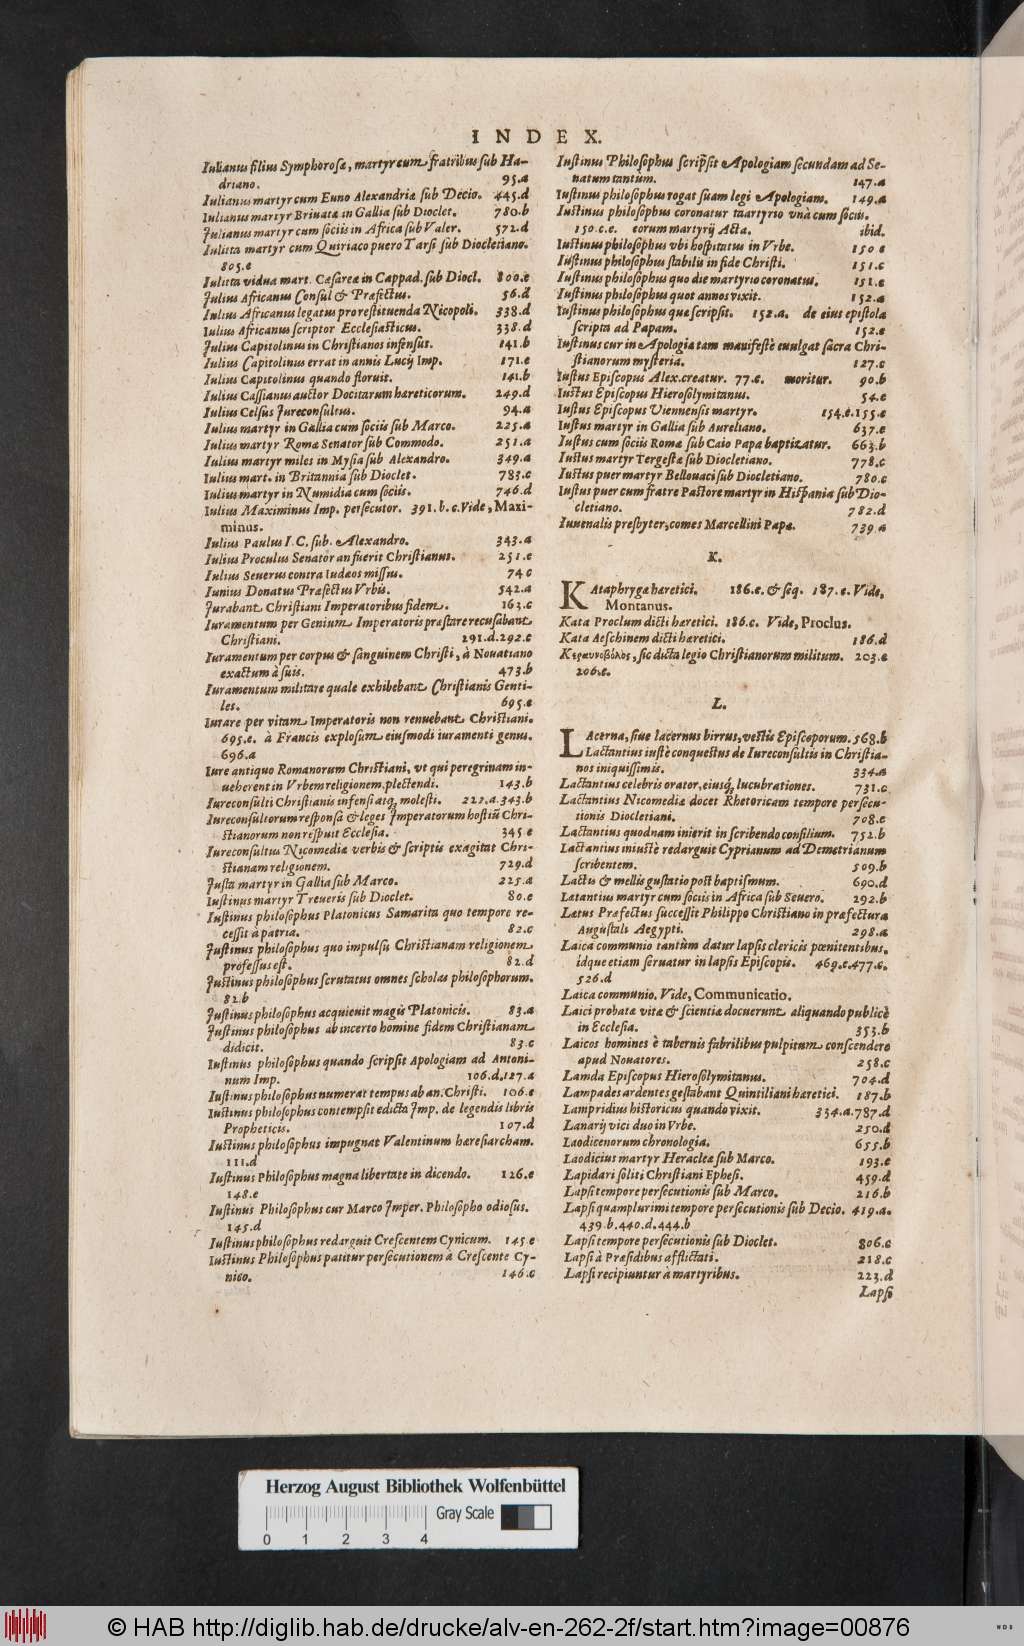 INDEX.
Iulianus filius Symphorosæ, martyr cum fratribus sub Ha-
driano. 95.a
Iulianus martyr cum Euno Alexandriæ sub Decio. 445.d
Iulianus martyr Briuatæ in Gallia sub Dioclet. 780.b
Iulianus martyr cum sociis in Africa sub Valer. 572.d
Iulitta martyr cum Quiriaco puero Tarsi sub Diocletiano.
805.e
Iulitta vidua mart. Cæsareæ in Cappad. sub Diocl. 800.e
Iulius Africanus Consul & Præfectus. 56.d
Iulius Africanus legatus pro restituenda Nicopoli. 338.d
Iulius Africanus scriptor Ecclesiasticus. 338.d
Iulius Capitolinus in Christianos infensus. 141.b
Iulius Capitolinus errat in annis Lucij Imp. 171.e
Iulius Capitolinus quando floruit. 141.b
Iulius Cassianus auctor Docitarum hæreticorum. 249.d
Iulius Celsus Iureconsultus. 94.a
Iulius martyr in Gallia cum sociis sub Marco. 225.a
Iulius martyr Romæ Senator sub Commodo. 251.a
Iulius martyr miles in Mysia sub Alexandro. 349.a
Iulius mart. in Britannia sub Dioclet. 783.c
Iulius martyr in Numidia cum sociis. 746.d
Iulius Maximinus Imp. persecutor. 391.b.c. Vide, Maxi-
minus.
Iulius Paulus I.C. sub Alexandro. 343.a
Iulius Proculus Senator an fuerit Christianus. 251.e
Iulius Seuerus contra Iudæos missus. 74 c
Iunius Donatus Præfectus Vrbis. 542.a
Iurabant Christiani Imperatoribus fidem. 163.c
Iuramentum per Genium Imperatoris præstare recusabant
Christiani. 291.d.292.c
Iuramentum per corpus & sanguinem Christi, à Nouatiano
exactum à suis. 473.b
Iuramentum militare quale exhibebant Christianis Genti-
les. 695.e
Iurare per vitam Imperatoris non renuebant Christiani.
695.e. à Francis explosum eiusmodi iuramenti genus.
696.a
Iure antiquo Romanorum Christiani, vt qui peregrinam in-
ueherent in Vrbem religionem, plectendi. 143.b
Iureconsulti Christianis infensi atq; molesti. 227.a.343.b
Iureconsultorum responsa & leges Imperatorum hostiũ Chri-
stianorum non respuit Ecclesia. 345 e
Iureconsultus Nicomediæ verbis & scriptis exagitat Chri-
stianam religionem. 729.d
Iusta martyr in Gallia sub Marco. 225.a
Iustinus martyr Treueris sub Dioclet. 80.e
Iustinus philosophus Platonicus Samarita quo tempore re-
cessit à patria. 82.c
Iustinus philosophus quo impulsu Christianam religionem
professus est. 82.d
Iustinus philosophus scrutatus omnes scholas philosophorum.
82.b
Iustinus philosophus acquieuit magis Platonicis. 83.a
Iustinus philosophus ab incerto homine fidem Christianam
didicit. 83.c
Iustinus philosophus quando scripsit Apologiam ad Antoni-
num Imp. 106.d.127.a
Iustinus philosophus numerat tempus ab an. Christi. 106.e
Iustinus philosophus contempsit edicta Imp. de legendis libris
Propheticis. 107.d
Iustinus philosophus impugnat Valentinum hæresiarcham.
111.d
Iustinus Philosophus magna libertate in dicendo. 126.e
148.e
Iustinus Philosophus cur Marco Imper. Philosopho odiosus.
145.d
Iustinus philosophus redarguit Crescentem Cynicum. 145.e
Iustinus Philosophus patitur persecutionem à Crescente Cy-
nico. 146.c
Iustinus Philosophus scripsit Apologiam secundam ad Se-
natum tantùm. 147.a
Iustinus philosophus rogat suam legi Apologiam. 149.a
Iustinus philosophus coronatur martyrio vnà cum sociis.
150.c.e. eorum martyrij Acta. ibid.
Iustinus philosophus vbi hospitatus in Vrbe. 150 e
Iustinus philosophus stabilis in fide Christi. 151.c
Iustinus philosophus quo die martyrio coronatus. 151.e
Iustinus philosophus quot annos vixit. 152.a
Iustinus philosophus quæ scripsit. 152.a. de eius epistola
scripta ad Papam. 152.e
Iustinus cur in Apologia tam manifestè euulgat sacra Chri-
stianorum mysteria. 127.c
Iustus Episcopus Alex. creatur. 77.c. moritur. 90.b
Iustus Episcopus Hierosolymitanus. 54.e
Iustus Episcopus Viennensis martyr. 154.e.155.e
Iustus martyr in Gallia sub Aureliano. 637.e
Iustus cum sociis Romæ sub Caio Papa baptizatur. 663.b
Iustus martyr Tergestæ sub Diocletiano. 778.c
Iustus puer martyr Bellouaci sub Diocletiano. 780.c
Iustus puer cum fratre Pastore martyr in Hispania sub Dio-
cletiano. 782.d
Iuuenalis presbyter, comes Marcellini Papæ. 739.a
K.
Kataphrygæ hæretici. 186.e. & seq. 187.e. Vide,
Montanus.
Kata Proclum dicti hæretici. 186.c. Vide, Proclus.
Kata Aeschinem dicti hæretici. 186.d
Κεραυνοβόλος, sic dicta legio Christianorum militum. 203.e
206.e.
L.
Lacerna, siue lacernus birrus, vestis Episcoporum. 568.b
Lactantius iustè conquestus de Iureconsultis in Christia-
nos iniquissimis. 334.a
Lactantius celebris orator, eiusq; lucubrationes. 731.c
Lactantius Nicomediæ docet Rhetoricam tempore persecu-
tionis Diocletiani. 708.e
Lactantius quodnam inierit in scribendo consilium. 752.b
Lactantius iniustè redarguit Cyprianum ad Demetrianum
scribentem. 509.b
Lactis & mellis gustatio post baptismum. 690.d
Lætantius martyr cum sociis in Africa sub Seuero. 292.b
Lætus Præfectus successit Philippo Christiano in præfectura
Augustali Aegypti. 298.a
Laica communio tantùm datur lapsis clericis pœnitentibus.
idque etiam seruatur in lapsis Episcopis. 469.e.477.c.
526.d
Laica communio. Vide, Communicatio.
Laici probatæ vitæ & scientiæ docuerunt aliquando publicè
in Ecclesia. 353.b
Laicos homines è tabernis fabrilibus pulpitum conscendere
apud Nouatores. 258.c
Lamda Episcopus Hierosolymitanus. 704.d
Lampades ardentes gestabant Quintiliani hæretici. 187.b
Lampridius historicus quando vixit. 334.a.787.d
Lanarij vici duo in Vrbe. 250.d
Laodicenorum chronologia. 655.b
Laodicius martyr Heracleæ sub Marco. 193.e
Lapidari soliti Christiani Ephesi. 459.d
Lapsi tempore persecutionis sub Marco. 216.b
Lapsi quamplurimi tempore persecutionis sub Decio. 419.a.
439.b.440.d.444.b
Lapsi tempore persecutionis sub Dioclet. 806.c
Lapsi à Præsidibus afflictati. 218.c
Lapsi recipiuntur à martyribus. 223.d
Lapsi
Herzog August Bibliothek Wolfenbüttel
Gray Scale
0 1 2 3 4
© HAB http://diglib.hab.de/drucke/alv-en-262-2f/start.htm?image=00876